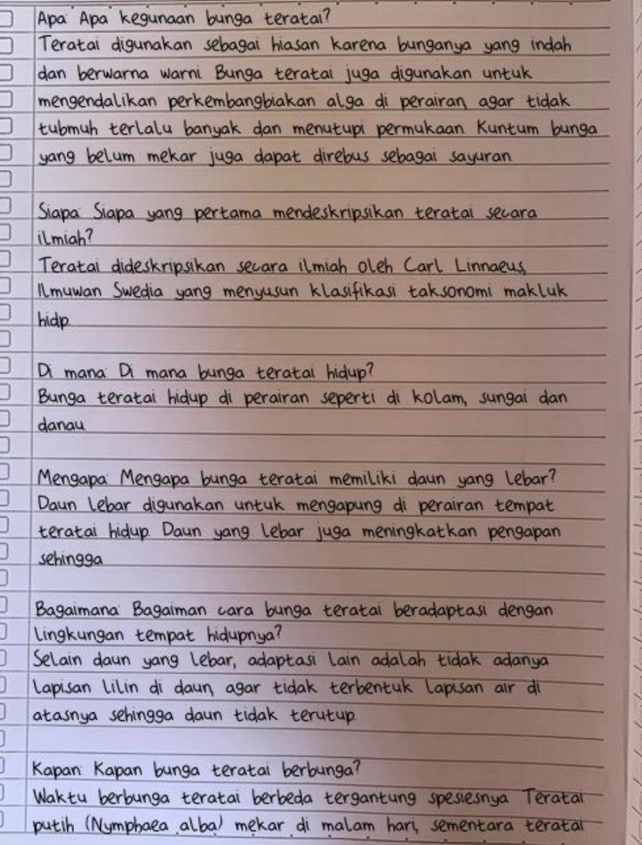 Apa Apa kegunaan bunga teratai?
Teratai digunakan sebagai hiasan karena bunganya yang indah
dan berwarna warni. Bunga teratai juga digunakan untuk
mengendalikan perkembangbiakan alga di perairan, agar tidak
tubmuh terlalu banyak dan menutupi permukaan Kuntum bunga
yang belum mekar juga dapat direbus sebagai sayuran
Siapa Siapa yang pertama mendeskripsikan teratai secara
ilmiah?
Teratai dideskripsikan secara ilmiah oleh Carl Linnaeus,
Ilmuwan Swedia yang menyusun klasifikasi taksonomi makluk
hidp.
Di mana Di mana bunga teratai hidup?
Bunga teratai hidup di perairan seperti di kolam, sungai dan
danau
Mengapa Mengapa bunga teratai memiliki daun yang lebar?
Daun lebar digunakan untuk mengapung di perairan tempat
teratai hidup. Daun yang lebar juga meningkatkan pengapan
sehingga
Bagaimana Bagaiman cara bunga teratai beradaptasi dengan
lingkungan tempat hidupnya?
Selain daun yang lebar, adaptasi lain adalah tidak adanya
lapisan lilin di daun, agar tidak terbentuk lapisan air di
atasnya sehingga daun tidak terutup.
Kapan Kapan bunga teratai berbunga?
Waktu berbunga teratai berbeda tergantung spesiesnya Teratai
putih (Nymphaea alba) mekar di malam hari, sementara teratai